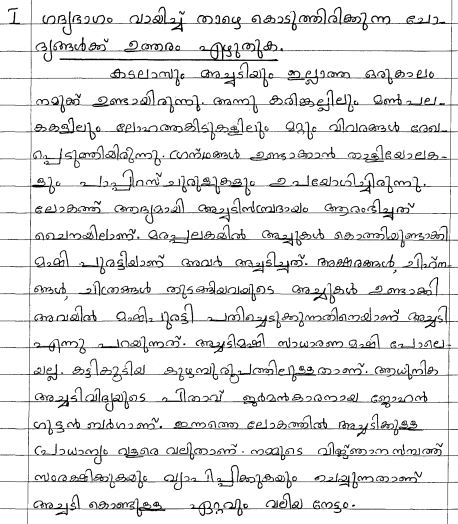 I ഗദ്യഭാഗം വായിച്ച് താഴെ കൊടുത്തിരിക്കുന്ന ചോ-
ദ്യങ്ങൾക്ക് ഉത്തരം എഴുതുക.
കടലാസും അച്ചടിയും ഇല്ലാത്ത ഒരുകാലം
നമുക്ക് ഉണ്ടായിരുന്നു. അന്നു കരിങ്കല്ലിലും മൺപല-
കകളിലും ലോഹത്തകിടുകളിലും മറ്റും വിവരങ്ങൾ രേഖ-
പ്പെടുത്തിയിരുന്നു. ഗ്രന്ഥങ്ങൾ ഉണ്ടാക്കാൻ താളിയോലക-
ളും പാപ്പിറസ് ചുരുളുകളും ഉപയോഗിച്ചിരുന്നു.
ലോകത്ത് ആദ്യമായി അച്ചടിസമ്പ്രദായം ആരംഭിച്ചത്
ചൈനയിലാണ്. മരപ്പലകയിൽ അച്ചുകൾ കൊത്തിയുണ്ടാക്കി
മഷി പുരട്ടിയാണ് അവർ അച്ചടിച്ചത്. അക്ഷരങ്ങൾ, ചിഹ്ന-
ങ്ങൾ, ചിത്രങ്ങൾ തുടങ്ങിയവയുടെ അച്ചുകൾ ഉണ്ടാക്കി
അവയിൽ മഷിപുരട്ടി പതിച്ചെടുക്കുന്നതിനെയാണ് അച്ചടി
എന്നു പറയുന്നത്. അച്ചടിമഷി സാധാരണ മഷി പോലെ-
യല്ല. കട്ടികൂടിയ കുഴമ്പുരൂപത്തിലുള്ളതാണ്. ആധുനിക
അച്ചടിവിദ്യയുടെ പിതാവ് ജർമൻകാരനായ ജോഹൻ
ഗുട്ടൻ ബർഗാണ്. ഇന്നത്തെ ലോകത്തിൽ അച്ചടിക്കുള്ള
പ്രാധാന്യം വളരെ വലുതാണ്. നമ്മുടെ വിജ്ഞാന സമ്പത്ത്
സംരക്ഷിക്കുകയും വ്യാപിപ്പിക്കുകയും ചെയ്യുന്നതാണ്
അച്ചടി കൊണ്ടുള്ള ഏറ്റവും വലിയ നേട്ടം.